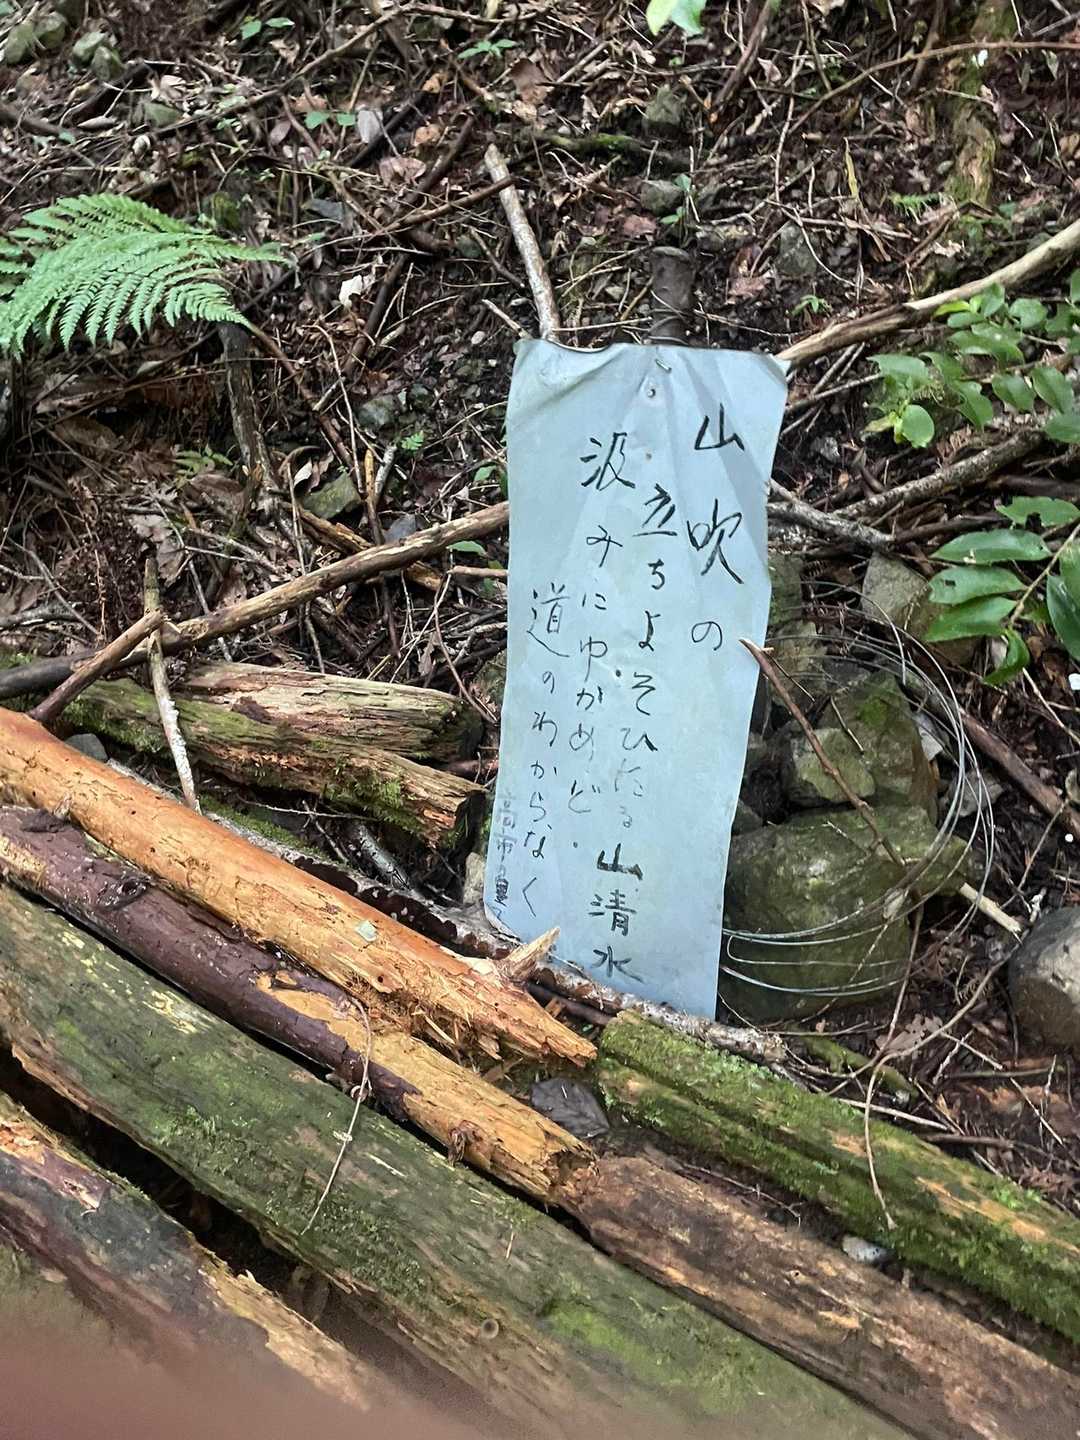 山吹の
立ちよそひたる山清水
汲みにゆかめど
道のわからなく
高市皇子